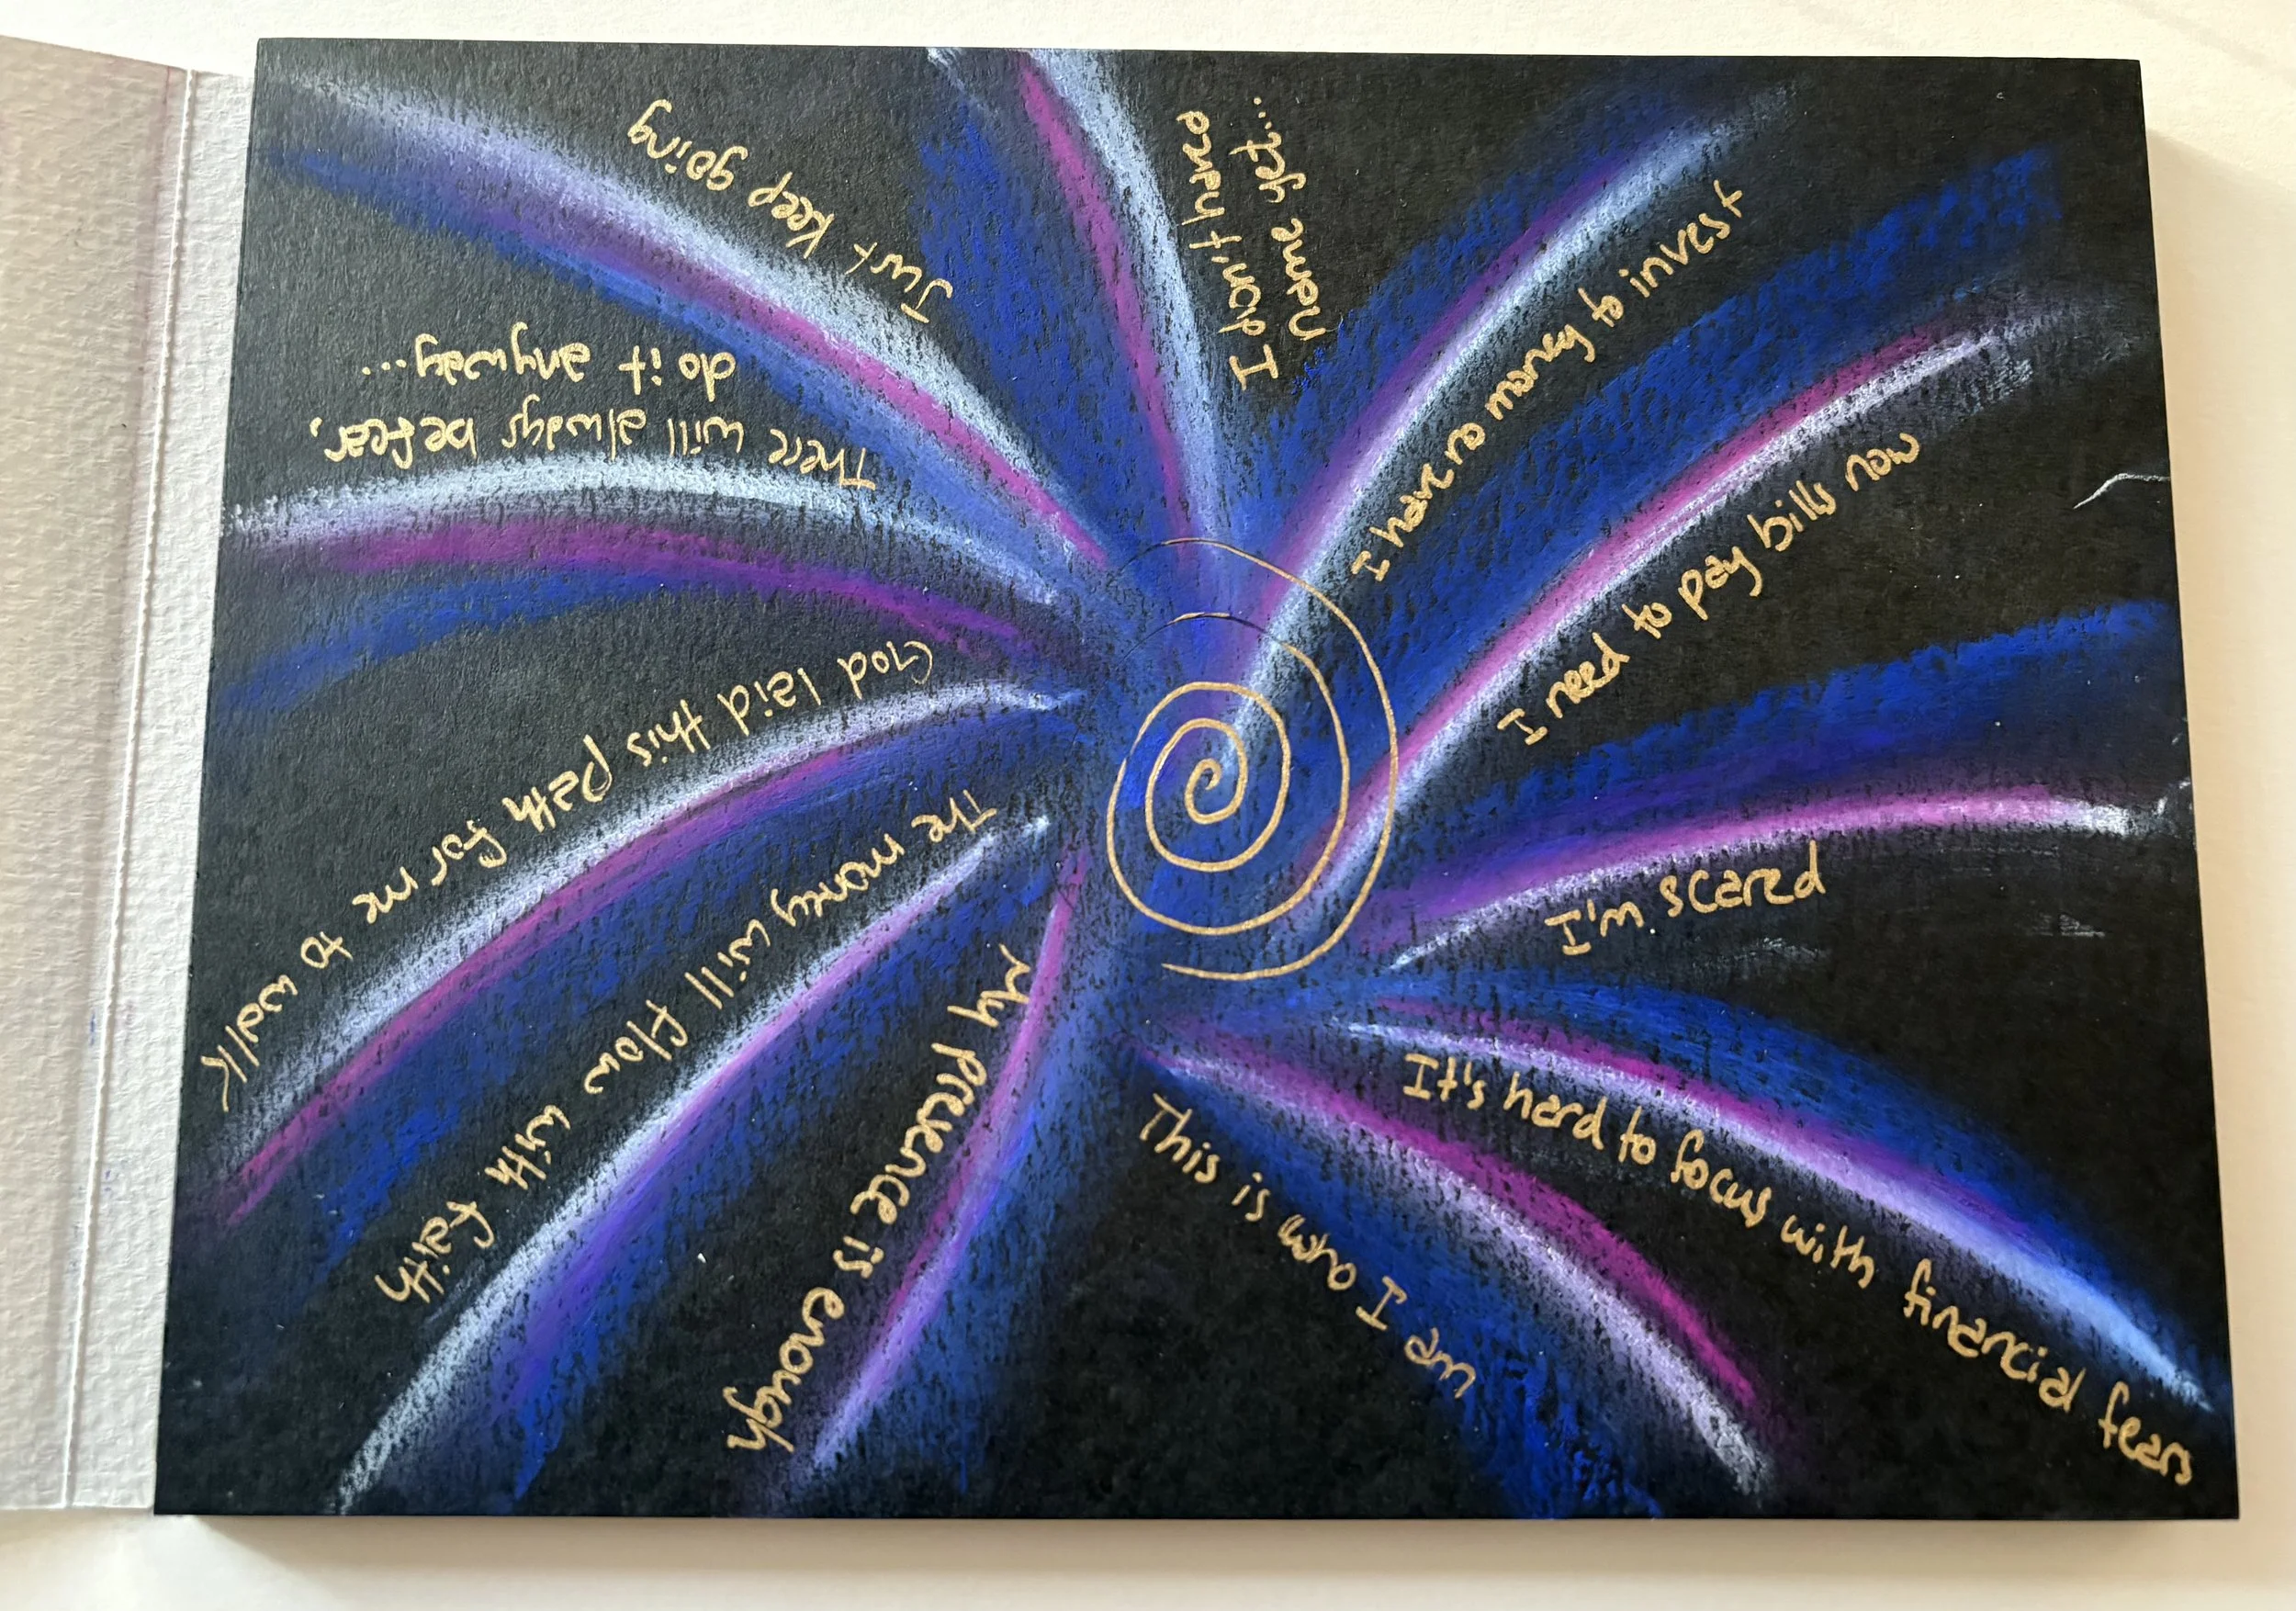 I don't have
name yet...
I have no money to invest
I need to pay bills now
I'm scared
It's hard to focus with financial fears
This is who I am
My presence is enough
The money will flow with faith
God laid this path for me to walk
There will always be fear,
do it anyway...
Just keep going